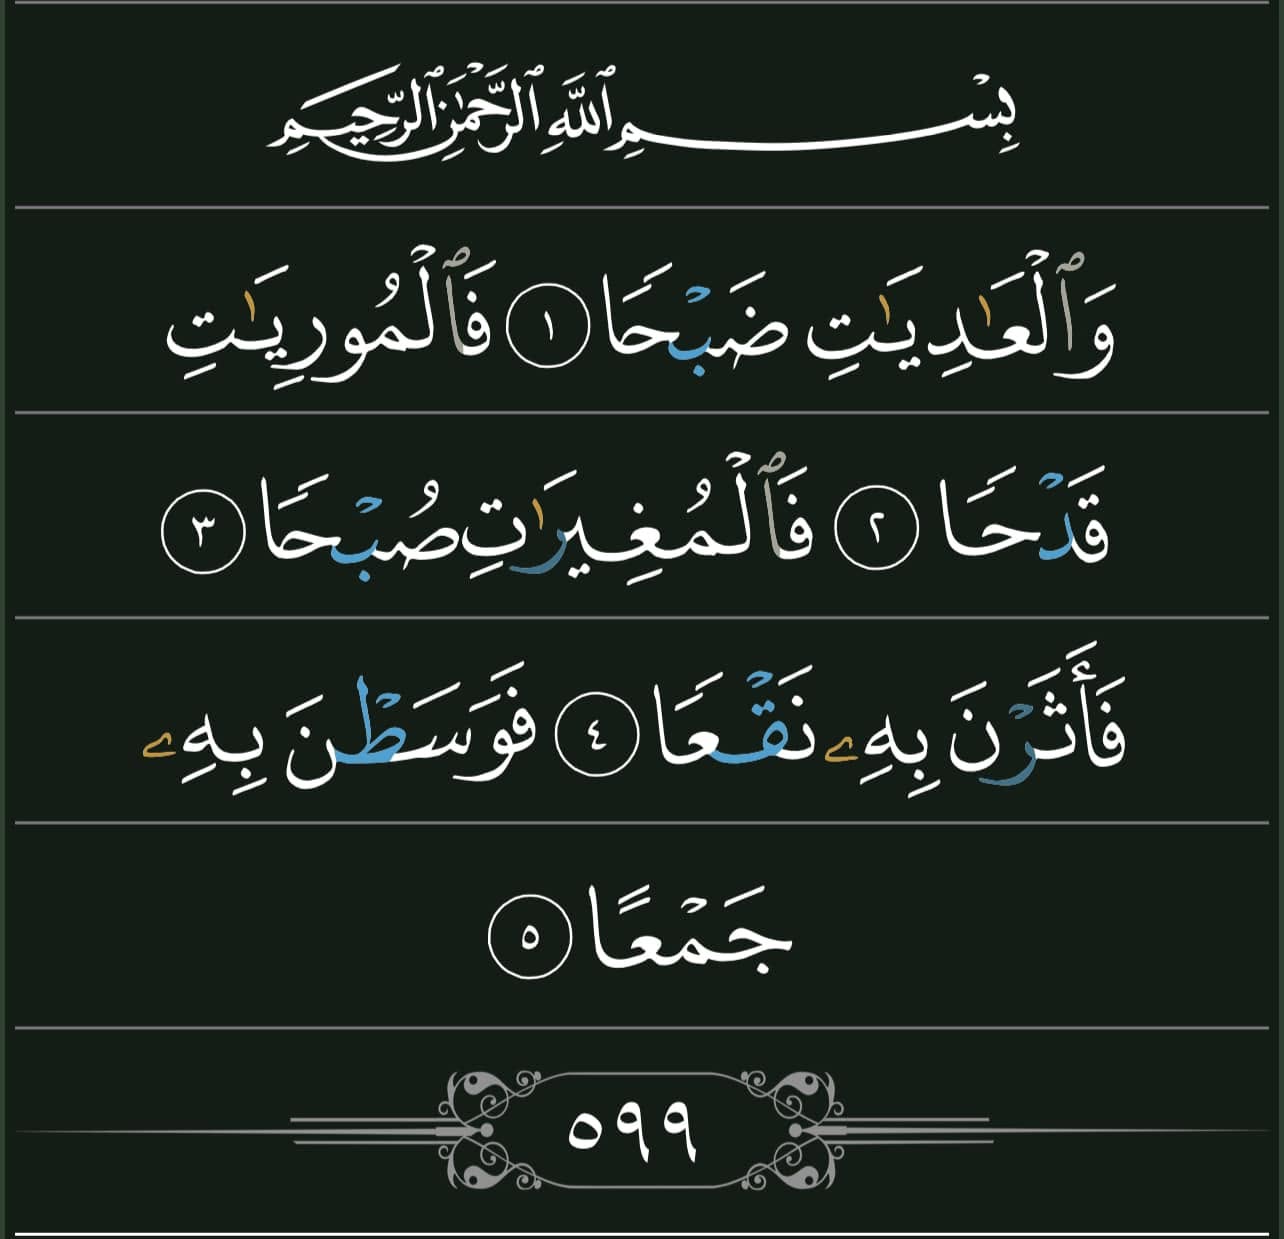 بِسْمِ ٱللَّهِ ٱلرَّحْمَٰنِ ٱلرَّحِيمِ
وَٱلْعَٰدِيَٰتِ ضَبْحًا ١ فَٱلْمُورِيَٰتِ
قَدْحًا ٢ فَٱلْمُغِيرَٰتِ صُبْحًا ٣
فَأَثَرْنَ بِهِۦ نَقْعًا ٤ فَوَسَطْنَ بِهِۦ
جَمْعًا ٥
٥٩٩